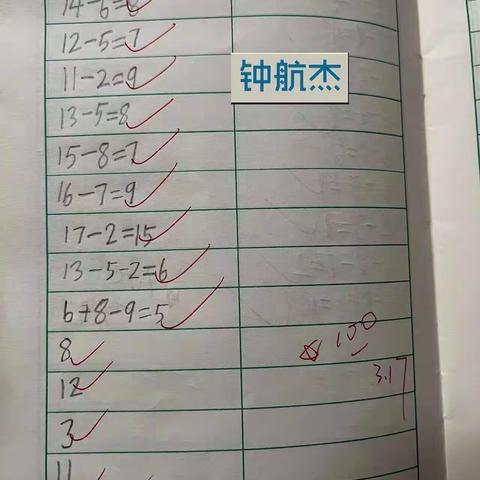 14-6=8
12-5=7
钟航杰
11-2=9
13-5=8
15-8=7
16-7=9
17-2=15
13-5-2=6
6+8-9=5
8
100
12
3.17
3
11